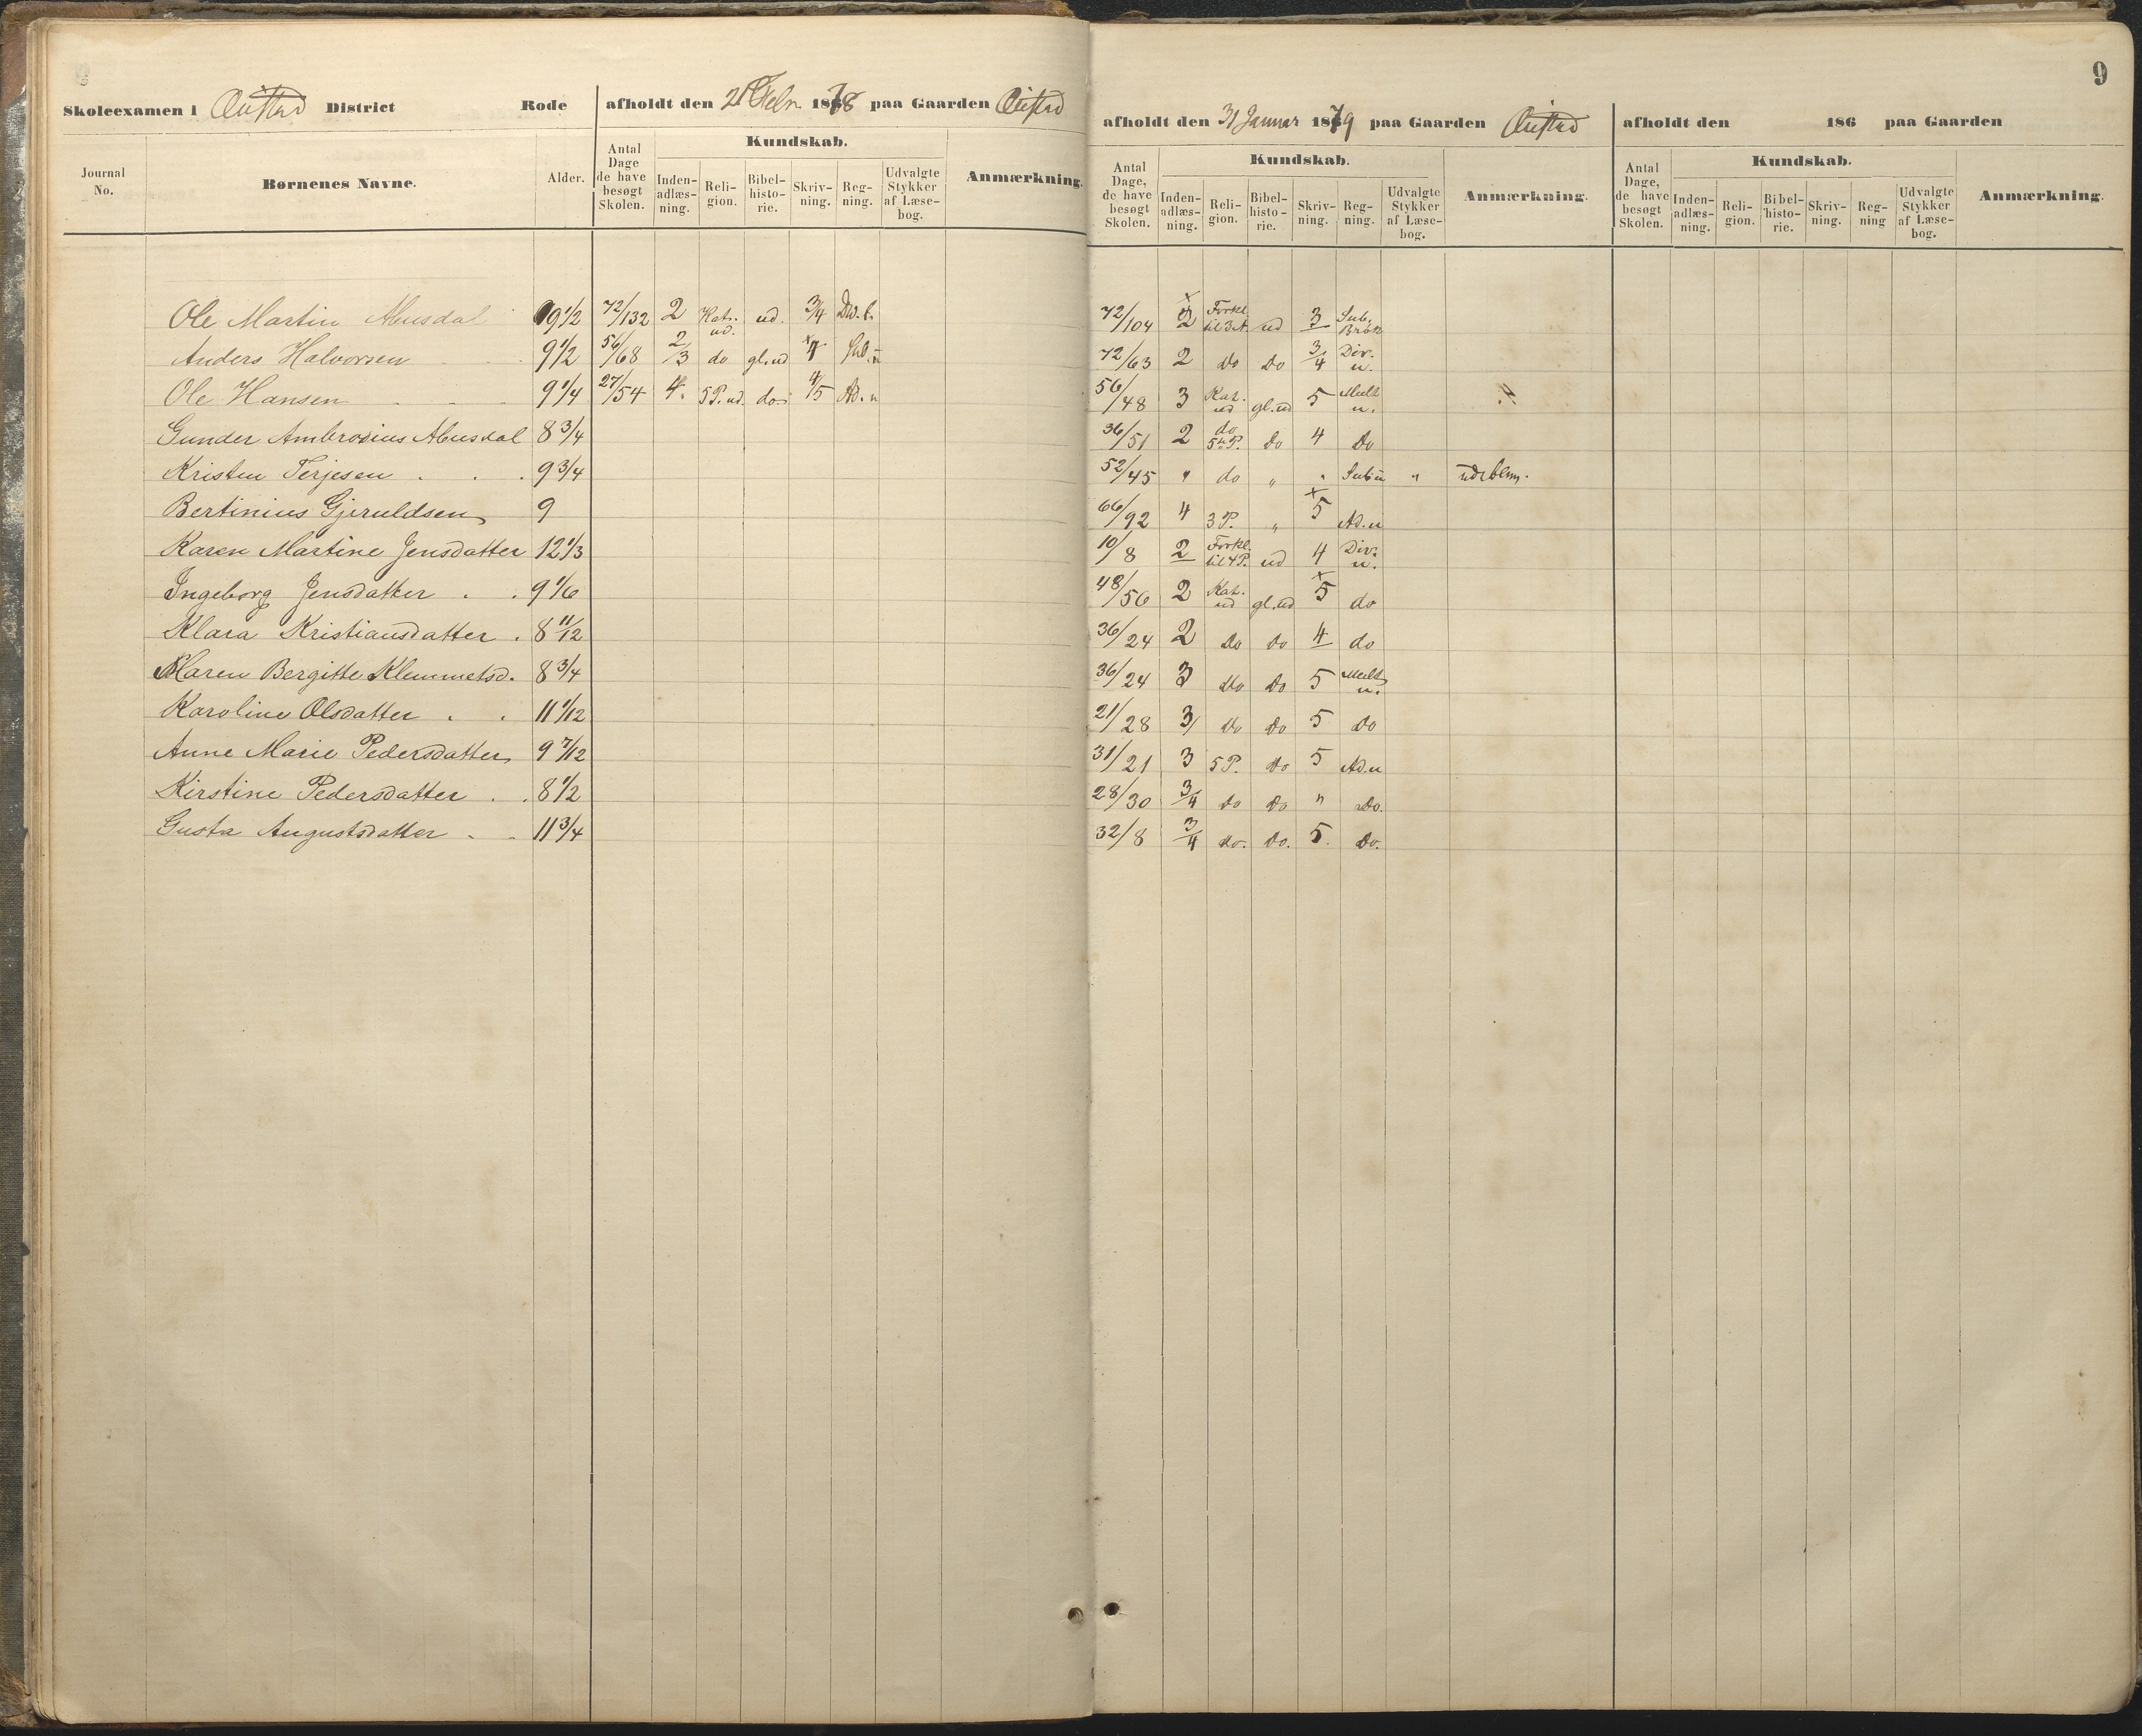 9
Skoleexamen i Øiestad District Rode afholdt den 21 Febr. 1878 paa Gaarden Øiestad
afholdt den 31 Januar 1879 paa Gaarden Øiestad afholdt den 186 paa Gaarden
Journal No. Børnenes Navne. Alder. Antal Dage de have besøgt Skolen. Kundskab. Inden-adlæs-ning. Reli-gion. Bibel-histo-rie. Skriv-ning. Reg-ning. Udvalgte Stykker af Læse-bog. Anmærkning.
Antal Dage, de have besøgt Skolen. Kundskab. Inden-adlæs-ning. Reli-gion. Bibel-histo-rie. Skriv-ning. Reg-ning. Udvalgte Stykker af Læse-bog. Anmærkning.
Antal Dage, de have besøgt Skolen. Kundskab. Inden-adlæs-ning. Reli-gion. Bibel-histo-rie. Skriv-ning. Reg-ning Udvalgte Stykker af Læse-bog. Anmærkning.
Ole Martin 9 1/2 72/132 2 Kat. ud. ud. 3/4 Div. 72/104 2 Forkl. ud 3 Sub. Brøk
Anders Halvorsen 9 1/2 56/68 2/3 do gl.ud 4 72/63 2 Do Do 3/4 Div. u.
Ole Hansen 9 1/4 27/54 4. 5 P. ud. do. 4/5 Ad. u 56/48 3 Kat. ud gl.ud 5 Mult u.
Gunder Ambrosius 8 3/4 36/51 2 do 5te P. Do 4 Do
Kristen Terjesen . . . 9 3/4 52/45 " do " " Sub u " udeblev.
Bertinius Gjeruldsen 9 66/92 4 3 P. " 5 Ad. u
Karen Martine Jensdatter 12 1/3 10/8 2 Forkl. til 4 P. ud 4 Div. u.
Ingeborg Jensdatter . . 9 1/6 48/56 2 Kat. ud gl.ud 5 do
Klara Kristiansdatter . 8 11/12 36/24 2 Do Do 4 do
Maren Bergitte Klemmetsd. 8 3/4 36/24 3 Do Do 5 Mult u.
Karoline Olsdatter . . 11 1/12 21/28 3 Do Do 5 Do
Anne Marie Pedersdatter 9 7/12 31/21 3 5 P. Do 5 Ad. u
Kirstine Pedersdatter . . 8 1/2 28/30 3/4 Do Do " Do.
Gusta Augustsdatter . . 11 3/4 32/8 3/4 do. Do. 5. Do.